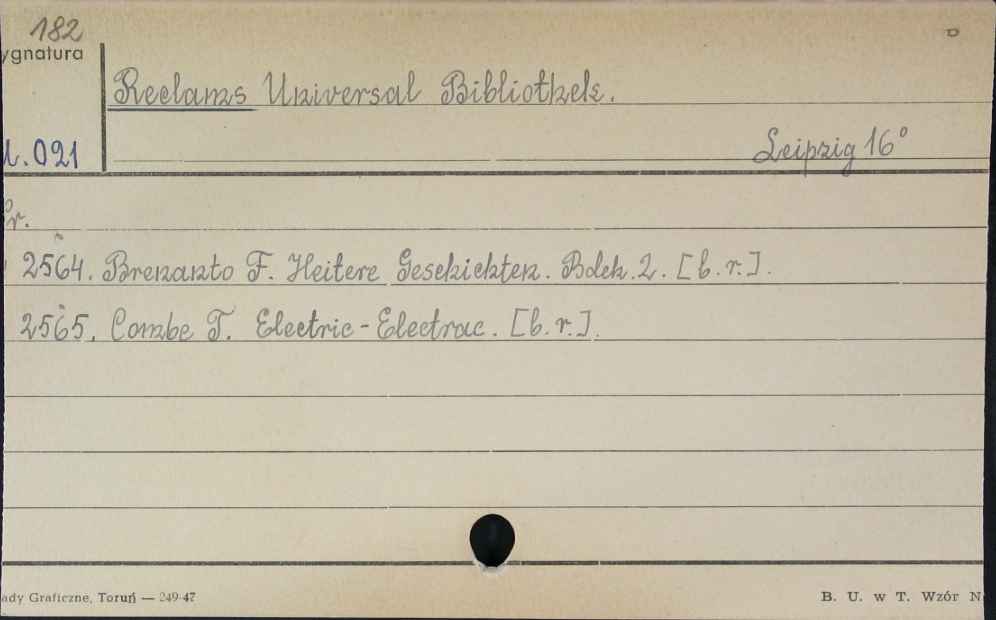 182
ygnatura
Reclams Universal Bibliothek.
021
Leipzig 16°
2564. Brenanto F. Heitere Geschichten. Bdch. 2. [b. r.].
2565. Combe T. Electric - Electrac. [b. r.].
ady Graficzne, Toruń — 249-47
B. U. w T. Wzór N